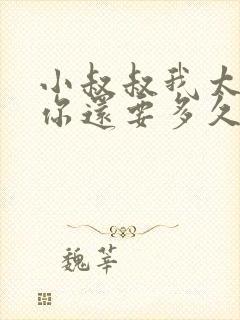 小叔叔我太
你還要多久
魏莘